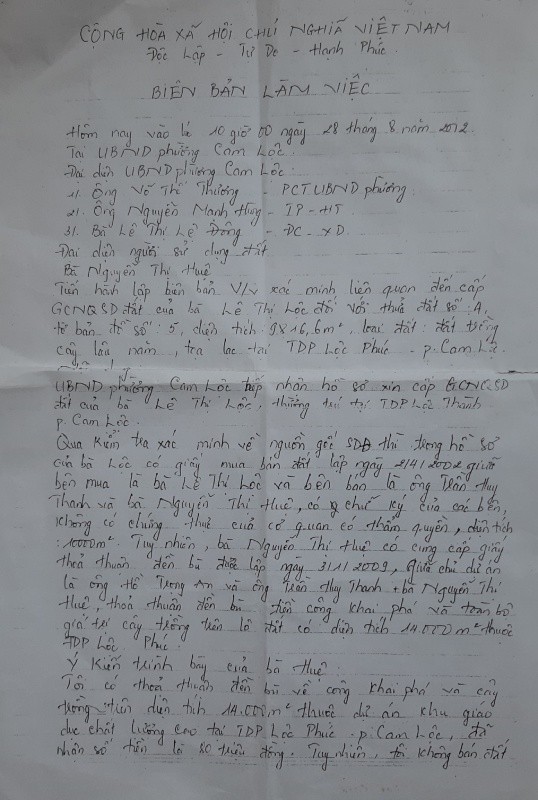 CỘNG HÒA XÃ HỘI CHỦ NGHĨA VIỆT NAM
Độc Lập - Tự Do - Hạnh Phúc.
BIÊN BẢN LÀM VIỆC
Hôm nay vào lúc 10 giờ 00 ngày 28 tháng 8 năm 2012.
Tại UBND phường Cam Lộc.
Đại diện UBND phường Cam Lộc:
1/. Ông Võ Thị Thương PCT UBND phường.
2/. Ông Nguyễn Mạnh Hùng - TP - HT
3/. Bà Lê Thị Lệ Đông - ĐC - XD.
Đại diện người sử dụng đất
Bà Nguyễn Thị Huê
Tiến hành lập biên bản V/v xác minh liên quan đến cấp
GCNQSD đất của bà Lê Thị Lộc đối với thửa đất số: A,
tờ bản đồ số: 5, diện tích: 9x16,6m², loại đất: đất trồng
cây lâu năm, tọa lạc tại TDP Lộc Phúc - p. Cam Lộc.
UBND phường Cam Lộc tiếp nhận hồ sơ xin cấp GCNQSD
đất của bà Lê Thị Lộc, thường trú tại TDP Lộc Thành
p. Cam Lộc.
Qua kiểm tra xác minh về nguồn gốc SDĐ thì trong hồ sơ
của bà Lộc có giấy mua bán đất lập ngày 2/4/2002 giữa
bên mua là bà Lê Thị Lộc và bên bán là ông Trần Huy
Thanh và bà Nguyễn Thị Huê, có chữ ký của các bên,
không có chứng thực của cơ quan có thẩm quyền, diện tích
: 1000m². Tuy nhiên, bà Nguyễn Thị Huê có cung cấp giấy
thoả thuận đền bù được lập ngày 3/11/2009, giữa chủ dự án
là ông Hồ Trọng An và ông Trần Huy Thanh + bà Nguyễn Thị
Huê, thoả thuận đền bù tiền công khai phá và toàn bộ
giá trị cây trồng trên lô đất có diện tích 14.000m² thuộc
TDP Lộc Phúc.
Ý kiến trình bày của bà Huê:
Tôi có thoả thuận đền bù về công khai phá và cây
trồng trên diện tích 14.000m² thuộc dự án khu giáo
dục chất lượng cao tại TDP Lộc Phúc - p. Cam Lộc, đã
nhận số tiền là 80 triệu đồng. Tuy nhiên, tôi không bán đất